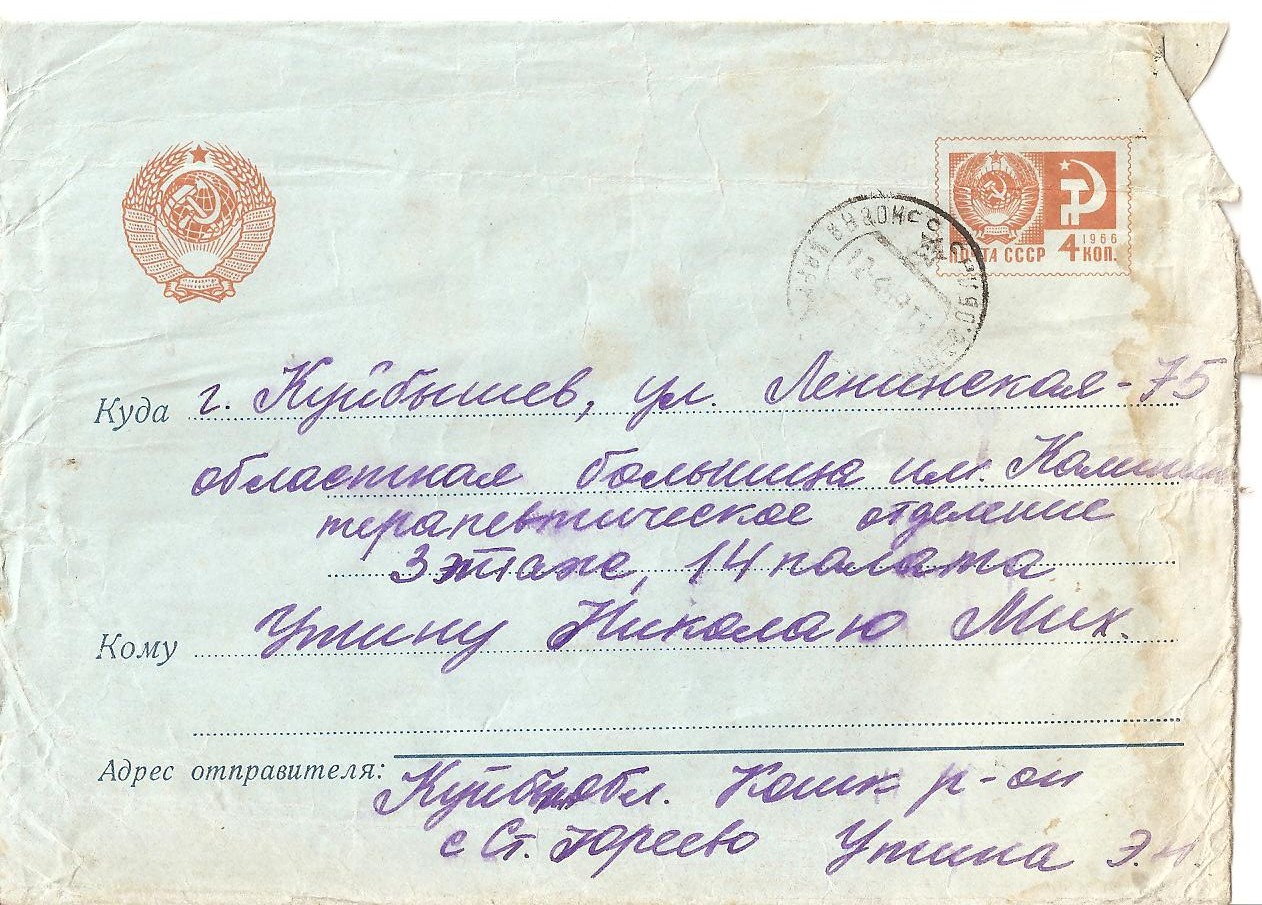 1966
ПОЧТА СССР 4 КОП.
Куда г. Куйбышев, ул. Ленинская-75
областная больница им. Калинина
терапевтическое отделение
3 этаже, 14 палата
Кому Утину Николаю Мих.
Адрес отправителя: Куйб. обл. Кошк р-он
с Ст. Юреево Утина Э.Н.